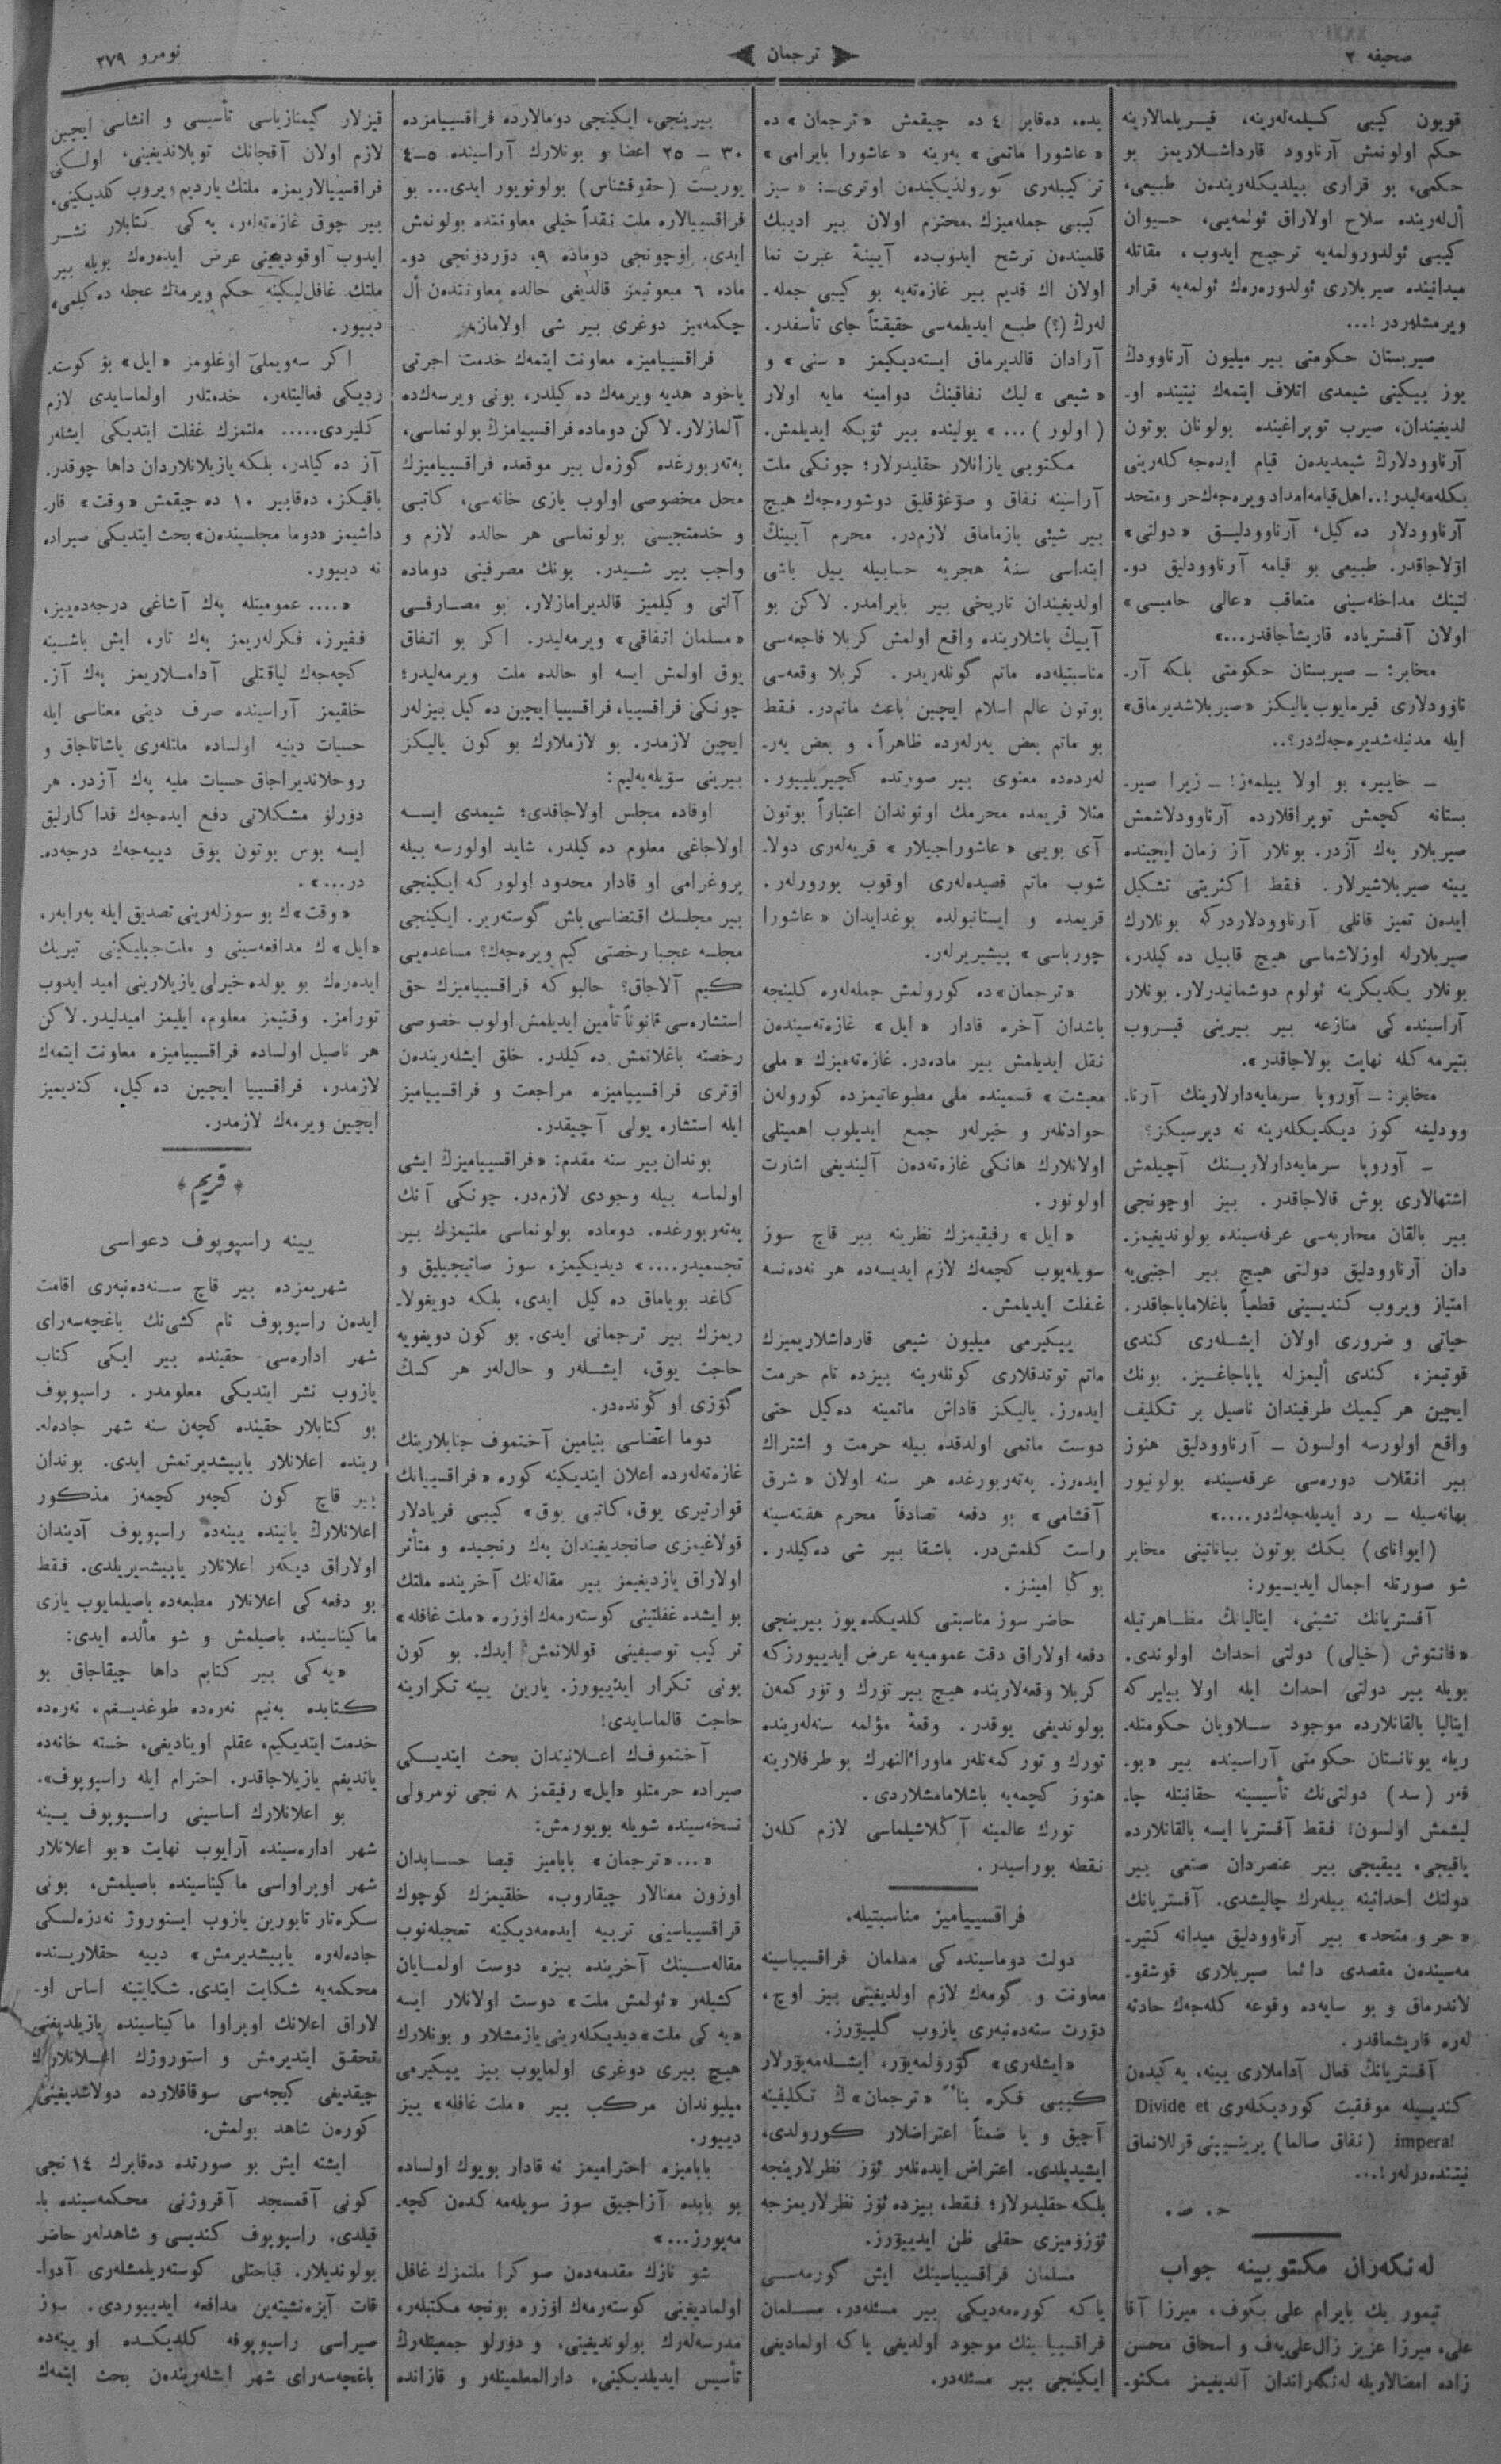 صحیفه ۲
ترجمان
نومرو ۲۷۹
قویون کیبی کسیلمه‌لەرینه، قیــریلمالارینه
حکم اولونمش آرناوود قارداشــلاریمز بو
حکمی، بو قراری بیلدیکلەریندەن طبیعی،
أل‌لەرینده سلاح اولاراق ئولمه‌یی، حــیوان
کیبی ئولدورولمه‌یه ترجیح ایدوب، مقاتله
میدانینده صیربلاری ئولدورەرەك ئولمه‌یه قرار
ویرمشلەردر!...
صیربستان حکومتی بیر میلیون آرناوودڭ
یوز بیكینی شیمدی اتلاف ایتمەك نیتینده او-
لدیغیندان، صیرب توپراغینده بولونان بوتون
آرناوودلارڭ شیمدیدەن قیام ایدەجه‌كلەرینی
بکله‌مه‌لیدر!.. اهل قیامه امداد ویرەجەك حر و متحد
آرناوودلار دەکیل، آرناوودلیــق «دولتی»
اۆلاجاقدر. طبیعی بو قیامه آرناوودلیق دو-
لتینك مداخله‌سینی متعاقب «عالی حامیسی»
اولان آفستریاده قاریشاجاقدر...»
مخابر: ــ صیربستان حکومتی بلکه آر-
ناوودلاری قیرمایوب یالیکز «صیربلاشدیرماق»
ایله مدنیله‌شدیرەجەك‌در؟..
ــ خاییر، بو اولا بیلمەز! ــ زیرا صیر-
بستانه كچمش توپراقلارده آرناوودلاشمش
صیربلار پەك آزدر. بونلار آز زمان ایچینده
یینه صیربلاشیرلار. فقط اكثریتی تشکیل
ایدەن تمیز قانلی آرناوودلاردرکه بونلارك
صیربلارله اوزلاشماسی هیچ قابیل دەکیلدر،
بونلار یكدیکرینه ئولوم دوشمانیدرلار. بونلار
آراسیندەکی منازعه بیر بیرینی قیــروب
بتیرمه‌کله نهایت بولاجاقدر».
مخابر: ــ آوروپا سرمایه‌دارلارینك آرنا-
وودلیغه کوز دیکدیکلەرینه نه دیرسیکز؟
ــ آوروپا سرمایه‌دارلاریــنك آچیلمش
اشتهالاری بوش قالاجاقدر. بیز اوچونجی
بیر بالقان محاربه‌سی عرفه‌سینده بولوندیغیمز-
دان آرناوودلیق دولتی هیچ بیر اجنبی‌یه
امتیاز ویروب کندیسینی قطعیاً باغلامایاجاقدر.
حیاتی و ضروری اولان ایشــلەری کندی
قوتیمز، کندی ألیمزله یاپاجاغــیز. بونك
ایچین هر کیمیك طرفیندان ناصیل بر تکلیف
واقع اولورسه اولسون ــ آرناوودلیق هنوز
بیر انقلاب دورەسی عرفه‌سینده بولونیور
بهانه‌سیله ــ رد ایدیله‌جەكدر....»
(ایوانای) بکك بوتون بیاناتینی مخابر
شو صورتله اجمال ایدیــیور:
آفستریانك تشبثی، ایتالیانڭ مظــاهرتیله
«فانتوش (خیالی) دولتی احداث اولوندی.
بویله بیر دولتی احداث ایله اولا بیلیرکه
ایتالیا بالقانلارده موجود ســلاویان حکومتله-
ریله یونانستان حکومتی آراسینده بیر «بو-
فەر (سد) دولتی‌نك تأسیسینه حقانیتله چا-
لیشمش اولسون؛ فقط آفستریا ایسه بالقانلارده
یاقیجی، ییقیجی بیر عنصردان صنعی بیر
دولتك احداثینه بیلەرك چالیشدی. آفستریانك
«حر و متحد» بیر آرناوودلیق میدانه کتیر-
مەسیندەن مقصدی دائما صیربلاری قوشقو-
لاندرماق و بو سایەده وقوعه کله‌جەك حادثه
لەرە قاریشماقدر.
آفستریانڭ فعال آداملاری یینه، یه کیدەن
کندیسیله موفقیت کوردیکلەری Divide et
impera! (نفاق صالما) پرینسیپنی قوللانماق
نیتنده‌درلەر!...
ح. ص.
لەنکەران مکتوبینه جواب
تیمور بك بایرام علی بکوف، میرزا آقا
علی، میرزا عزیز زال‌علی‌یەف و اسحاق محسن
زاده امضالاریله لەنکەراندان آلدیغیمز مکتو-
بده، دەقابر ٤ ده چیقمش «ترجمان»ده
«عاشورا ماتمی» یەرینه «عاشورا بایرامی»
ترکیبلەری کورولدیکیندەن اوتری ــ: «سیز
کیبی جمله‌میزك محترم اولان بیر ادیبك
قلمیندەن ترشح ایدوب‌ده آیینۀ عبرت نما
اولان اك قدیم بیر غازەته‌یه بو کیبی جمله-
لەرڭ (؟) طبــع ایدیلمه‌سی حقیقتاً جای تأسفدر.
آرادان قالدیرماق ایسته‌دیکیمز «سنی» و
«شیعی» لیك نفاقینڭ دوامینه مایه اولار
(اولور)...» یولینده بیر ئۆپکه ایدیلمش.
مکتوبی یازانلار حقلیدرلار؛ چونکی ملت
آراسینه نفاق و صۆغۆقلیق دوشورەجەك هیچ
بیر شیئی یازماماق لازم‌در. محرم آیینڭ
ابتداسی سنۀ هجریه حسابیله ییل باشی
اولدیغیندان تاریخی بیر بایرامدر. لاکن بو
آییڭ باشلارینده واقع اولمش کربلا فاجعه‌سی
مناسبتیله‌ده ماتم گونلەریدر. کربلا وقعه‌سی
بوتون عالم اسلام ایچین باعث ماتم‌در. فقط
بو ماتم بعض یەرلەرده ظاهراً، و بعض یەر-
لەرده‌ده معنوی بیر صورتده کچیریلییور.
مثلا قریمده محرمك اوتوندان اعتباراً بوتون
آی بویی «عاشوراجیلار» قریه‌لەری دولا-
شوب ماتم قصیده‌لەری اوقوب یورورلەر.
قریمده و ایستانبولده بوغدایدان «عاشورا
چورباسی» پیشیریرلەر.
«ترجمان»ده کورولمش جمله‌لەرە کلینجه
باشدان آخرە قادار «ایل» غازەته‌سیندەن
نقل ایدیلمش بیر ماده‌در. غازەته‌میزك «ملی
معیشت» قسمینده ملی مطبوعاتیمزده کورولەن
حوادثلەر و خبرلەر جمع ایدیلوب اهمیتلی
اولانلارك هانکی غازەته‌دەن آلیندیغی اشارت
اولونور.
«ایل» رفیقیمزك نظرینه بیر قاچ سوز
سویله‌یوب کچمەك لازم ایدیسه‌ده هر نه‌دەنسه
غفلت ایدیلمش.
ییکیرمی میلیون شیعی قارداشلاریمیزك
ماتم توتدقلاری کونلەرینه بیزده تام حرمت
ایدەرز. یالیکز قاداش ماتمینه دەکیل حتی
دوست ماتمی اولدقده بیله حرمت و اشتراك
ایدەرز. پەتەربورغده هر سنه اولان «شرق
آقشامی» بو دفعه تصادفاً محرم هفته‌سینه
راست کلمش‌در. باشقا بیر شی دەکیلدر.
بوڭا امینز.
حاضر سوز مناسبتی کلدیکده یوز بیرینجی
دفعه اولاراق دقت عمومیه‌یه عرض ایدییورزکه
کربلا وقعه‌لارینده هیچ بیر تۆرك و تۆرکمەن
بولوندیغی یوقدر. وقعۀ مؤلمه سنه‌لەرینده
تورك و تورکمەنلەر ماوراءالنهرك بو طرفلارینه
هنوز کچمه‌یه باشلامامشلاردی.
تورك عالمینه آڭلاشیلماسی لازم کلەن
نقطه بوراسیدر.
فراقسییامیز مناسبتیله.
دولت دوماسینده‌کی مسلمان فراقسییاسینه
معاونت و گومەك لازم اولدیغینی بیز اوچ،
دۆرت سنه‌دەنبەری یازوب گلییۆرز.
«ایشلەری» گۆرۆلمه‌یۆر، ایشــله‌مه‌یۆرلار
کیبی فکرە بناءً «ترجمان»ڭ تکلیفینه
آچیق و یا ضمناً اعتراضلار کورولدی،
ایشیدیلدی. اعتراض ایدەنلەر ئۆز نظرلارینجه
بلکه حقلیدرلار؛ فقط، بیزده ئۆز نظرلاریمزجه
ئۆزۆمیزی حقلی ظن ایدییۆرز.
مسلمان فراقسییاسینك ایش کورمه‌ســی
یاکه کورەمه‌دیکی بیر مسئله‌در، مســلمان
فراقسییا‌سینك موجود اولدیغی یاکه اولمادیغی
ایکینجی بیر مسئله‌در.
بیرینجی، ایکینجی دومالارده فراقسییامزده
۳۰ ــ ۲۵ اعضا و بونلارك آراسینده ٥–٤
یوریست (حقوقشناس) بولونویور ایدی... بو
فراقسییالاره ملت نقداً خیلی معاونتده بولونمش
ایدی. اۆچونجی دوماده ۹، دۆردونجی دو-
ماده ٦ مبعوثیمز قالدیغی حالده معاونتدەن أل
چکمه‌میز دوغری بیر شی اولامازدر.
فراقسییامیزه معاونت ایتمەك خدمت اجرتی
یاخود هدیه ویرمەك دەکیلدر، بونی ویرسەك‌ده
آلمازلار. لاکن دوماده فراقسییامزڭ بولونماسی،
پەتەربورغده گوزەل بیر موقعده فراقسییامیزك
محل مخصوصی اولوب یازی خانه‌سی، کاتبی
و خدمتچیسی بولونماسی هر حالده لازم و
واجب بیر شــیدر. بونك مصرفینی دوماده
آلتی وکیلمیز قالدیرامازلار. بو مصــارفــی
«مسلمان اتفاقی» ویرمه‌لیدر. اکر بو اتفاق
یوق اولمش ایسه او حالده ملت ویرمه‌لیدر؛
چونکی فراقسییا، فراقسییا ایچین دەکیل بیزلەر
ایچین لازمدر. بو لازملارك بو کون یالیکز
بیرینی سۆیله‌یه‌لیم:
اوفاده مجلس اولاجاقدی؛ شیمدی ایســه
اولاجاغی معلوم دەکیلدر، شاید اولورسه بیله
پروغرامی او قادار محدود اولورکه ایکینجی
بیر مجلسك اقتضاسی باش گوستەریر. ایکینجی
مجلسه عجبا رخصتی کیم ویرەجەك؟ مساعده‌یی
کیم آلاجاق؟ حالبوکه فراقسییامیزك حق
استشارەسی قانوناً تأمین ایدیلمش اولوب خصوصی
رخصته باغلانمش دەکیلدر. خلق ایشلەریندەن
اۆتری فراقسییامیزه مراجعت و فراقسییامیز
ایله استشاره یولی آچیقدر.
بوندان بیر سنه مقدم: «فراقسییامیزڭ ایشی
اولماسه بیله وجودی لازم‌در. چونکی آنك
پەتەربورغده. دوماده بولونماسی ملتیمزك بیر
تجسمیدر....» دیدیکیمز، سوز صاتیجیلیق و
کاغد بویاماق دەکیل ایدی، بلکه دویغولا-
ریمزك بیر ترجمانی ایدی. بو کون دویغویه
حاجت یوق، ایشــلەر و حال‌لەر هر کسڭ
گۆزی اۆکونده‌در.
دوما اعضاسی بنیامین آختموف جنابلارینك
غازەته‌لەرده اعلان ایتدیکینه کوره «فراقسییانك
قوارتیری یوق، کاتبی یوق» کیبی فریادلار
قولاغیمزی صانجدیغیندان پەك رنجیده و متأثر
اولاراق یازدیغیمز بیر مقاله‌نك آخرینده ملتك
بو ایشده غفلتینی کوستەرمەك اۆزره «ملت غافله»
ترکیب توصیفینی قوللانمش ایدك. بو کون
بونی تکرار ایدییورز. یارین یینه تکرارینه
حاجت قالماسایدی!
آختموفڭ اعــلانیندان بحث ایتدیــکی
صیراده حرمتلو «ایل» رفیقمز ۸ نجی نومرولی
نسخه‌سینده شویله بویورمش:
«...«ترجمان» بابامیز قیصا حســابدان
اوزون معنالار چیقاروب، خلقیمزك کوچوك
فراقسییاسینی تربیه ایده‌مه‌دیکینه تعجبله‌نوب
مقاله‌ســینك آخرینده بیزه دوست اولمــایان
کشیلەر «ئولمش ملت» دوست اولانلار ایسه
«یه‌کی ملت» دیدیکلەرینی یازمشلار و بونلارك
هیچ بیری دوغری اولمایوب بیز ییکیرمی
میلیوندان مرکب بیر «ملت غافله» ییز
دییور.
بابامیزه احترامیمز نه قادار بویوك اولساده
بو بابده آزاجیق سوز سویله‌مه‌کدەن کچه-
مەیورز...»
شو نازك مقدمه‌دەن صوکرا ملتمزك غافل
اولمادیغینی کوستەرمەك اۆزره بونجه مکتبلەر،
مدرسه‌لەرك بولوندیغینی، و دۆرلو جمعیتلەرڭ
تأسیس ایدیلدیکینی، دارالمعلمینلەر و قازانده
قیزلار گیمنازیاسی تأسیسی و انشاسی ایچین
لازم اولان آقچانك توپلاندیغینی، اولــکی
فراقسییالاریمزه ملتك یاردیم ویروب کلدیکینی،
بیر چوق غازەته‌لەر، یه‌کی کتابلار نشــر
ایدوب اوقودیغینی عرض ایدەرەك بویله بیر
ملتك غافل‌لیکینه حکم ویرمەك عجله دەکیلمی،
دییور.
اکر سەویملی اوغلومز «ایل» بۆ کوسته-
ردیکی فعالیتلەر، خدمتلەر اولماسایدی لازم
کلیردی..... ملتمزك غفلت ایتدیکی ایشلەر
آز دەکیلدر، بلکه یازیلانلاردان داها چوقدر.
باقیکز، دەقابیر ۱۰ ده چیقمش «وقت» قار-
داشیمز «دوما مجلسیندەن» بحث ایتدیکی صیراده
نه دییور.
«.... عمومیتله پەك آشاغی درجه‌ده‌ییز،
فقیرز، فکرلەریمز پەك تار، ایش باشــینه
کچه‌جەك لیاقتلی آدامــلاریمز پەك آز.
خلقیمز آراسینده صرف دینی معناسی ایله
حسیات دینیه اولساده ملتلەری یاشاتاجاق و
روحلاندیراجاق حسیات ملیه پەك آزدر. هر
دۆرلۆ مشکلاتی دفع ایده‌جەك فداکارلیق
ایسه بوس بوتون یوق دییه‌جەك درجه‌ده-
در...».
«وقت»ك بو سوزلەرینی تصدیق ایله بەرابەر،
«ایل»ك مدافعه‌سینی و ملت‌چیلیکینی تبریك
ایدەرەك بو یولده خیرلی یازیلارینی امید ایدوب
تورامز. وقتیمز معلوم، ایلیمز امیدلیدر. لاکن
هر ناصیل اولساده فراقسییامیزه معاونت ایتمەك
لازمدر، فراقسییا ایچین دەکیل، کندیمیز
ایچین ویرمەك لازمدر.
﴿ قریم ﴾
یینه راسپوپوف دعواسی
شهریمزده بیر قاچ ســنه‌دەنبەری اقامت
ایدەن راسپوپوف نام کشی‌نك باغچه‌سەرای
شهر ادارەسی حقینده بیر ایکی کتاب
یازوب نشر ایتدیکی معلومدر. راسپوپوف
بو کتابلار حقینده کچەن سنه شهر جاده‌له-
رینده اعلانلار یاپیشدیرتمش ایدی. بوندان
بیر قاچ کون کچەر کچمەز مذکور
اعلانلارڭ یانینده یینه‌ده راسپوپوف آدیندان
اولاراق دیکەر اعلانلار یاپیشدیریلدی. فقط
بو دفعه‌کی اعلانلار مطبعه‌ده باصیلمایوب یازی
ماکیناسینده باصیلمش و شو مألده ایدی:
«یه‌کی بیر کتابم داها چیقاجاق بو
کتابده بەنیم نەرەده طوغدیــغم، نەرەده
خدمت ایتدیکیم، عقلم اویناد‌یغی، خسته خانه‌ده
یاتدیغم یازیلاجاقدر. احترام ایله راسپوپوف».
بو اعلانلارك اساسینی راســپوپوف یــینه
شهر ادارەسینده آرایوب نهایت «بو اعلانلار
شهر اوپراواسی ماکیناسینده باصیلمش، بونی
سکرەتار تابورین یازوب ایستوروژ نەدزەلسکی
جاده‌لەرە یاپیشدیرمش» دییه حقلاریــنده
محکمه‌یه شکایت ایتدی. شکایتینه اساس او-
لاراق اعلانك اوپراوا ماکیناسینده یازیلدیغنی
تحقیق ایتدیرمش و استوروژك اعــلانلارك
چیقدیغی کیجه‌سی سوقاقلارده دولاشدیغینی
کورەن شاهد بولمش.
ایشته ایش بو صورتده دەقابرك ۱٤ نجی
کونی آقمسجد آقروژنی محکمه‌سینده با-
قیلدی. راسپوپوف کندیسی و شاهدلەر حاضر
بولوندیلار. قباحتلی کوستەریلمشلەری آدوا-
قات آیزەنشتەین مدافعه ایدییوردی. سوز
صیراسی راسپوپوفه کلدیکــده او یینه‌ده
باغچه‌سەرای شهر ایشلەریندەن بحث ایتمەك